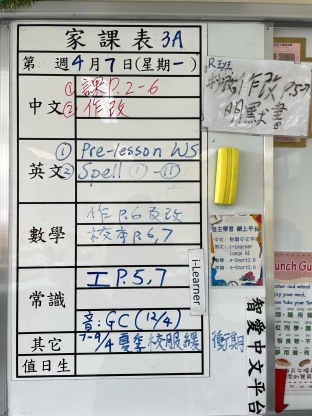 家課表 3A
第 週 4月7日(星期一)
中文
① 課P.2-6
② 作改
英文
① Pre-lesson WS
② Spell ①-⑪
數學
作P.6及改
校本P.6,7
常識
工P.5,7
音:GC (12/4)
其它
7-9/4 夏季校服緩衝期
值日生
R班
作改 P.5-7
明默書
i-Learner
自主學習 網上平台
智愛中文平台
Lunch Gu